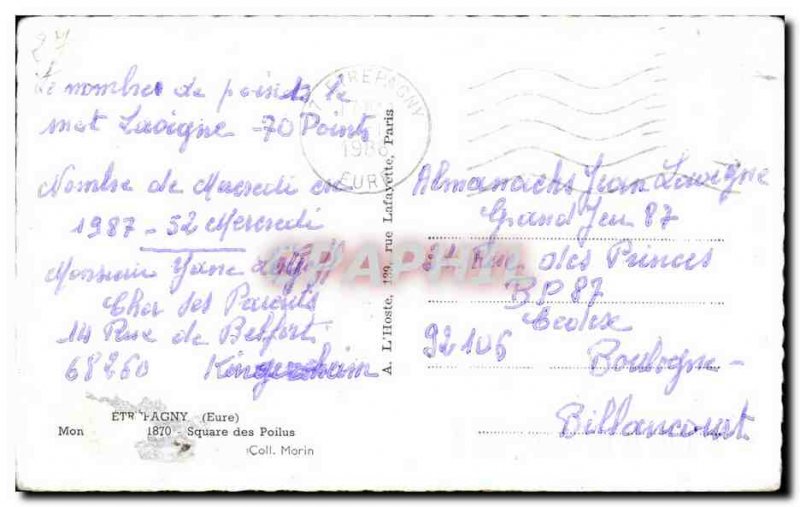 27
Le nombre de points le
mot Lavigne - 70 Points
Nombre de Mercredi en
1987 - 52 Mercredi
Monsieur Yane
Chez ses Parents
14 Rue de Belfort
68260 Kingersheim
ETREPAGNY
1986
EURE
A. L'Hoste, 139, rue Lafayette, Paris
Almanachs Jean Lavigne
Grand Jeu 87
Rue des Princes
B.P 87
92106 Cedex
Boulogne-
Billancourt
GRAPHIL
ÉTR PAGNY (Eure)
Mon 1870 - Square des Poilus
Coll. Morin